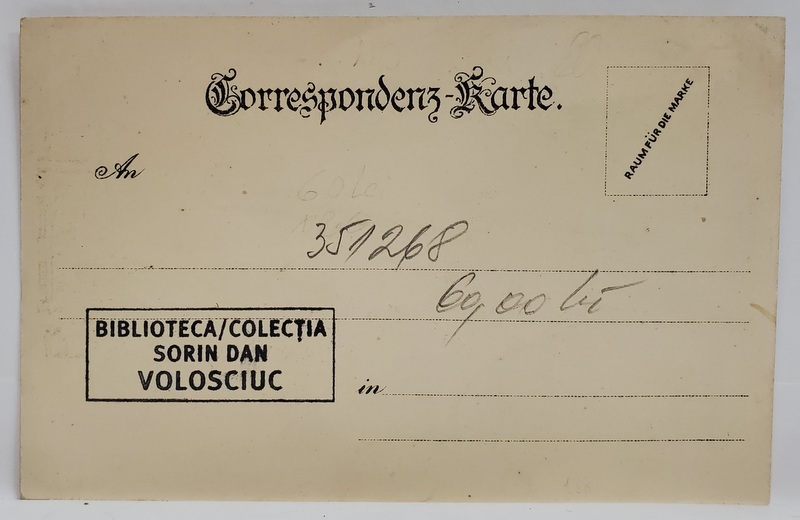 Correspondenz-Karte.
RAUM FÜR DIE MARKE
An
351268
60,00 lei
BIBLIOTECA/COLECȚIA
SORIN DAN
VOLOSCIUC
in